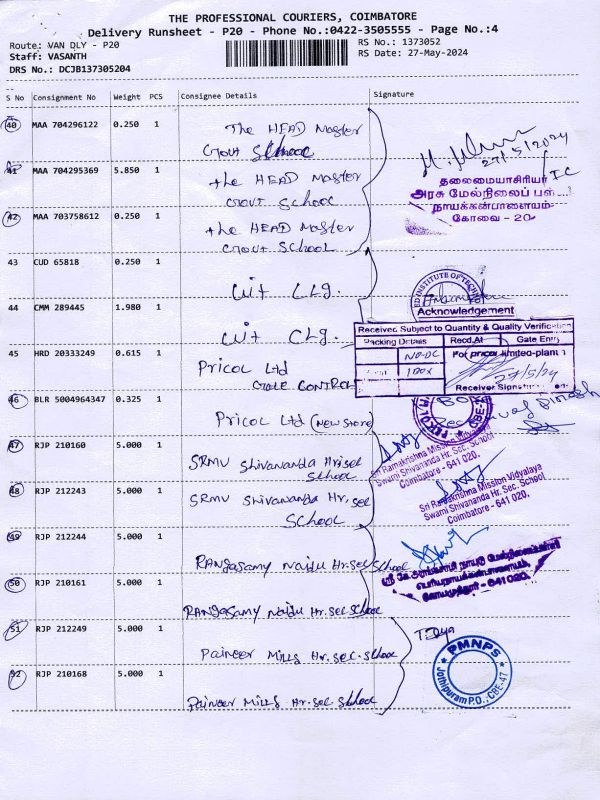 THE PROFESSIONAL COURIERS, COIMBATORE
Delivery Runsheet - P20 - Phone No.:0422-3505555 - Page No.:4
Route: VAN DLY - P20
RS No.: 1373052
Staff: VASANTH
RS Date: 27-May-2024
DRS No.: DCJB137305204
S No Consignment No Weight PCS Consignee Details Signature
40 MAA 704296122 0.250 1 The HEAD Master
Govt School
27/5/2024
41 MAA 704295369 5.850 1 the HEAD Master
Govt School
தலைமையாசிரியர்
அரசு மேல்நிலைப் பள்
நாயக்கன்பாளையம்
கோவை - 20
42 MAA 703758612 0.250 1 the HEAD Master
Govt School
43 CUD 65818 0.250 1 Cit Clg.
ED INSTITUTE OF TECHN
Acknowledgement
44 CMM 289445 1.980 1 Cit Clg.
Received Subject to Quantity & Quality Verification
Packing Details Recd.At Gate Entry
NO-DC
1 BOX
For pricol limited-plant-1
27/5/24
Receiver Signature
45 HRD 20333249 0.615 1 Pricol Ltd
CONTROL
46 BLR 5004964347 0.325 1 Pricol Ltd (New Store)
47 RJP 210160 5.000 1 SRMV Shivananda Hr.sec
School
Sri Ramakrishna Mission Vidyalaya
Swami Shivananda Hr. Sec. School
Coimbatore - 641 020.
48 RJP 212243 5.000 1 SRMV Shivananda Hr, sec
School
Sri Ramakrishna Mission Vidyalaya
Swami Shivananda Hr. Sec. School
Coimbatore - 641 020.
49 RJP 212244 5.000 1 RANgasamy Naidu Hr.sec School
641 020.
50 RJP 210161 5.000 1 RANgasamy Naidu Hr.sec School
51 RJP 212249 5.000 1 Paineer Mills Hr.sec.school
52 RJP 210168 5.000 1 Paineer Mills Hr.sec School
PMNPS
Jothipuram P.O., CBE-47